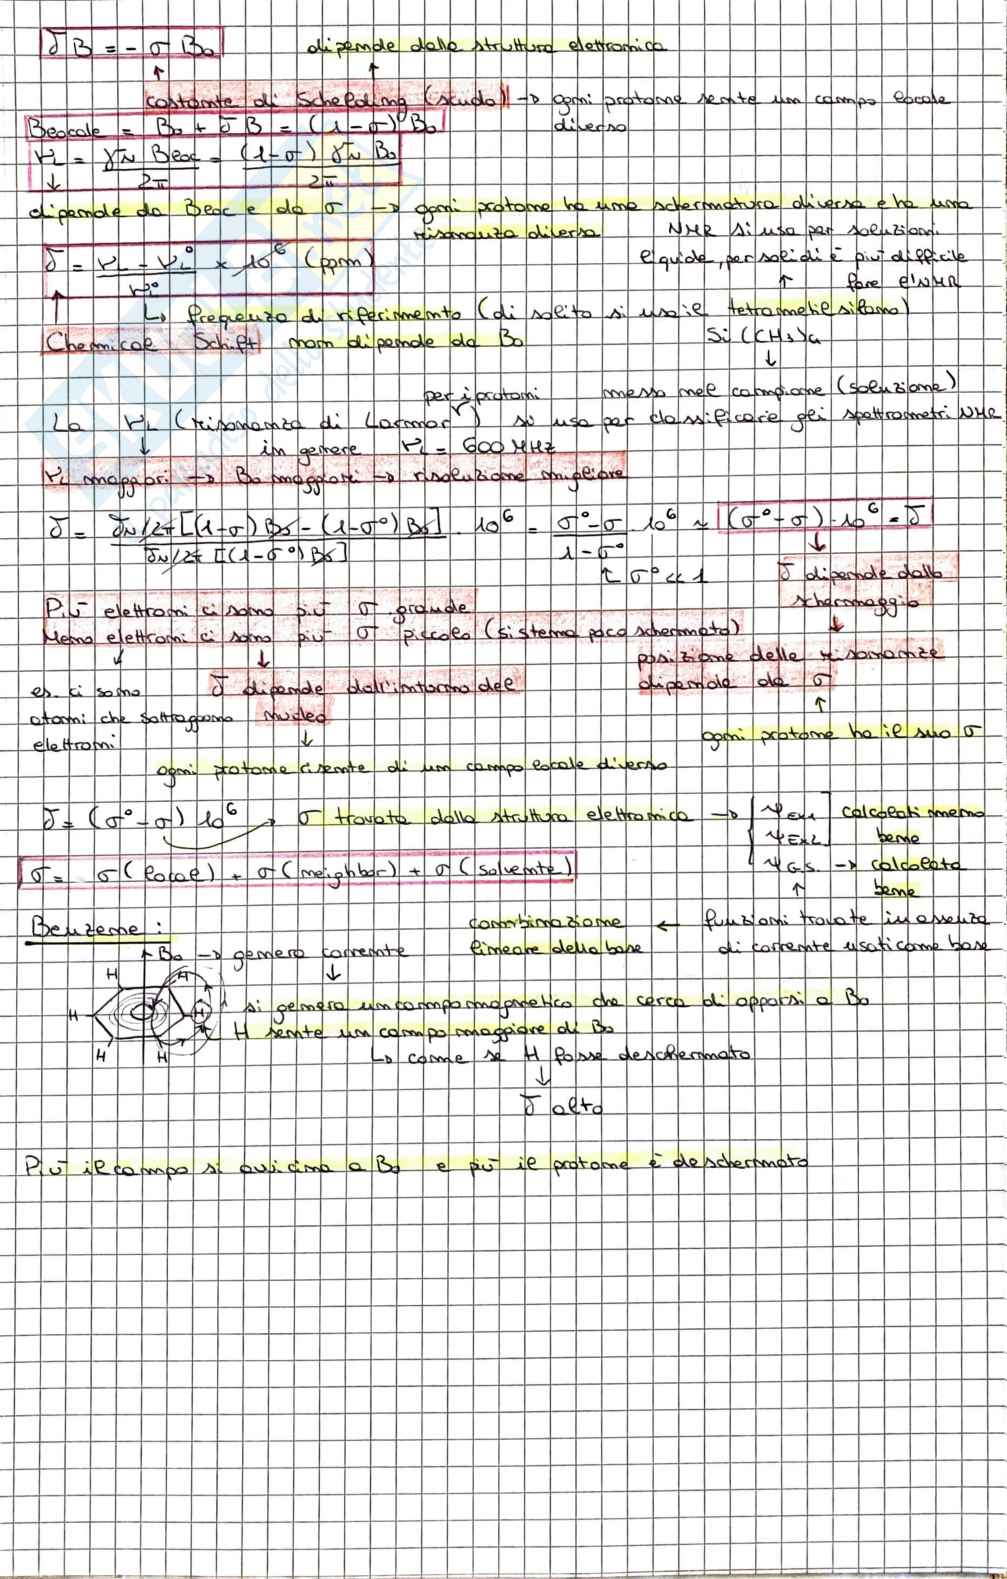 δB = - σ B₀ dipende dalla struttura elettronica
costante di Schelding (scudo) → ogni protone sente un campo locale
diverso
Blocale = B₀ + δB = (1-σ) B₀
νL = γN Bloc / 2π = (1-σ) γN B₀ / 2π
dipende da Bloc e da σ → ogni protone ha una schermatura diversa e ha una
risonanza diversa NMR si usa per soluzioni
liquide, per solidi è più difficile
fare l'NMR
δ = νL - νL° / νL° × 10⁶ (ppm)
↳ frequenza di riferimento (di solito si usa il tetrametilsilano)
Chemical Shift non dipende da B₀ Si(CH₃)₄
per i protoni messo nel campione (soluzione)
La νL (risonanza di Larmor) si usa per classificare gli spettrometri NMR
in genere νL = 600 MHz
νL maggiori → B₀ maggiori → risoluzione migliore
δ = γN/2π [(1-σ) B₀ - (1-σ°) B₀] / γN/2π [(1-σ°) B₀] · 10⁶ = σ°-σ / 1-σ° · 10⁶ ≈ (σ°-σ) · 10⁶ = δ
↑ σ° << 1 δ dipende dallo
schermaggio
Più elettroni ci sono più σ grande
Meno elettroni ci sono più σ piccolo (sistema poco schermato)
posizione delle risonanze
dipende da σ
es. ci sono δ dipende dall'intorno del
atomi che sottraggono nucleo
elettroni
ogni protone ha il suo σ
ogni protone risente di un campo locale diverso
δ = (σ°-σ) 10⁶ → σ trovata dalla struttura elettronica → ψEX1 calcolati meno
ψEX2 bene
σ = σ(local) + σ(neighbor) + σ(solvente) ψG.S. → calcolata
bene
Benzene : combinazione ← funzioni trovate in assenza
lineare della base di corrente usati come base
B₀ → genera corrente
H H
H H si genera un campo magnetico che cerca di opporsi a B₀
H sente un campo maggiore di B₀
H H ↳ come se H fosse deschermato
δ alto
Più il campo si avvicina a B₀ e più il protone è deschermato